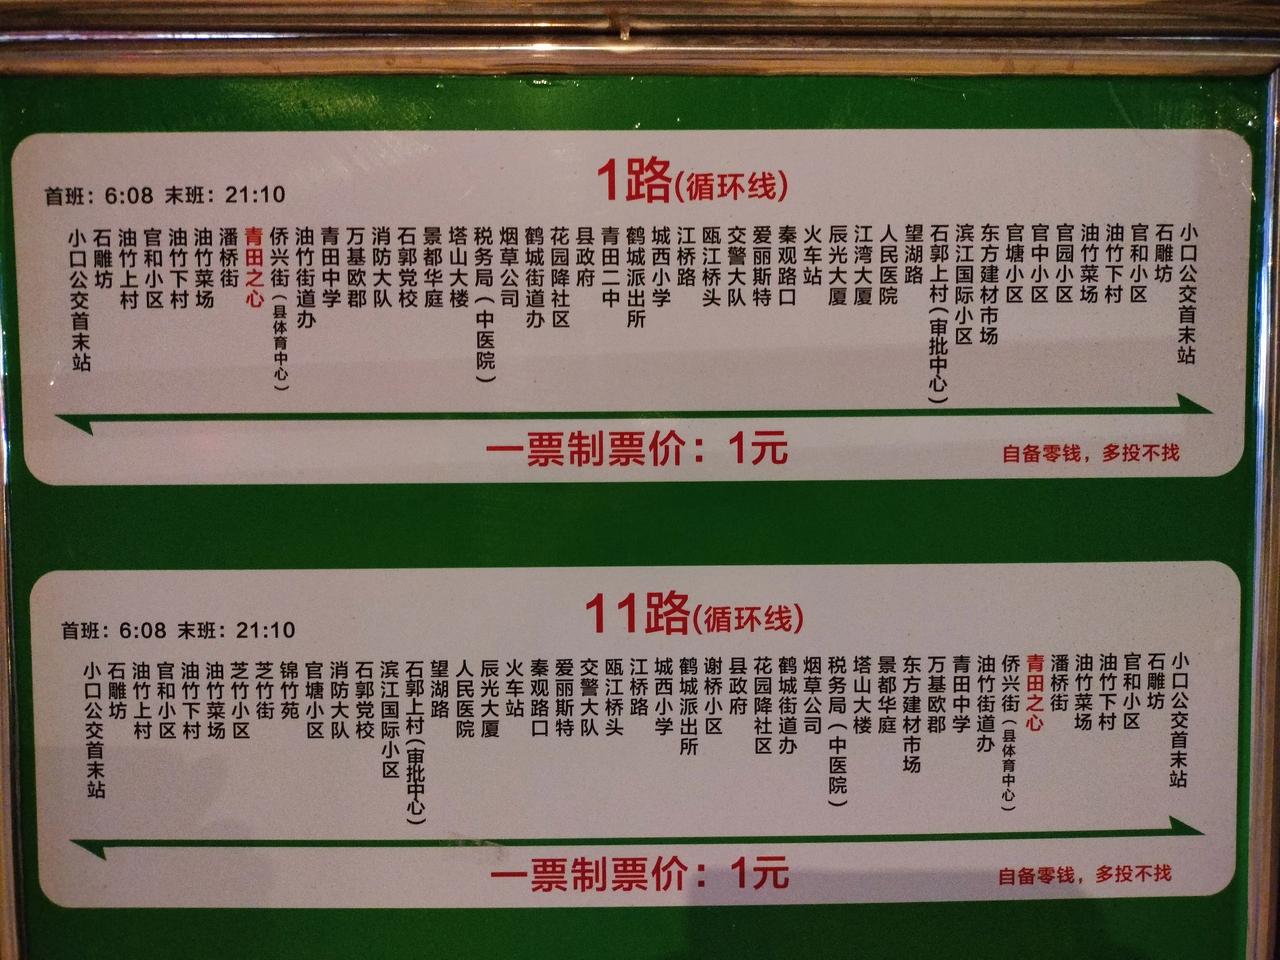 1路(循环线)
首班：6:08 末班：21:10
小口公交首末站
石雕坊
油竹上村
官和小区
油竹下村
油竹菜场
潘桥街
青田之心
侨兴街(县体育中心)
油竹街道办
青田中学
万基欧郡
消防大队
石郭党校
景都华庭
塔山大楼
税务局(中医院)
烟草公司
鹤城街道办
花园降社区
县政府
青田二中
鹤城派出所
城西小学
江桥路
瓯江桥头
交警大队
爱丽斯特
秦观路口
火车站
辰光大厦
江湾大厦
人民医院
望湖路
石郭上村(审批中心)
滨江国际小区
东方建材市场
官塘小区
官中小区
官园小区
油竹菜场
油竹下村
官和小区
石雕坊
小口公交首末站
一票制票价：1元
自备零钱，多投不找
11路(循环线)
首班：6:08 末班：21:10
小口公交首末站
石雕坊
油竹上村
官和小区
油竹下村
油竹菜场
芝竹小区
芝竹街
锦竹苑
官塘小区
消防大队
石郭党校
滨江国际小区
石郭上村(审批中心)
望湖路
人民医院
辰光大厦
火车站
秦观路口
爱丽斯特
交警大队
瓯江桥头
江桥路
城西小学
鹤城派出所
谢桥小区
县政府
花园降社区
鹤城街道办
烟草公司
税务局(中医院)
塔山大楼
景都华庭
东方建材市场
万基欧郡
青田中学
油竹街道办
侨兴街(县体育中心)
青田之心
潘桥街
油竹菜场
油竹下村
官和小区
石雕坊
小口公交首末站
一票制票价：1元
自备零钱，多投不找